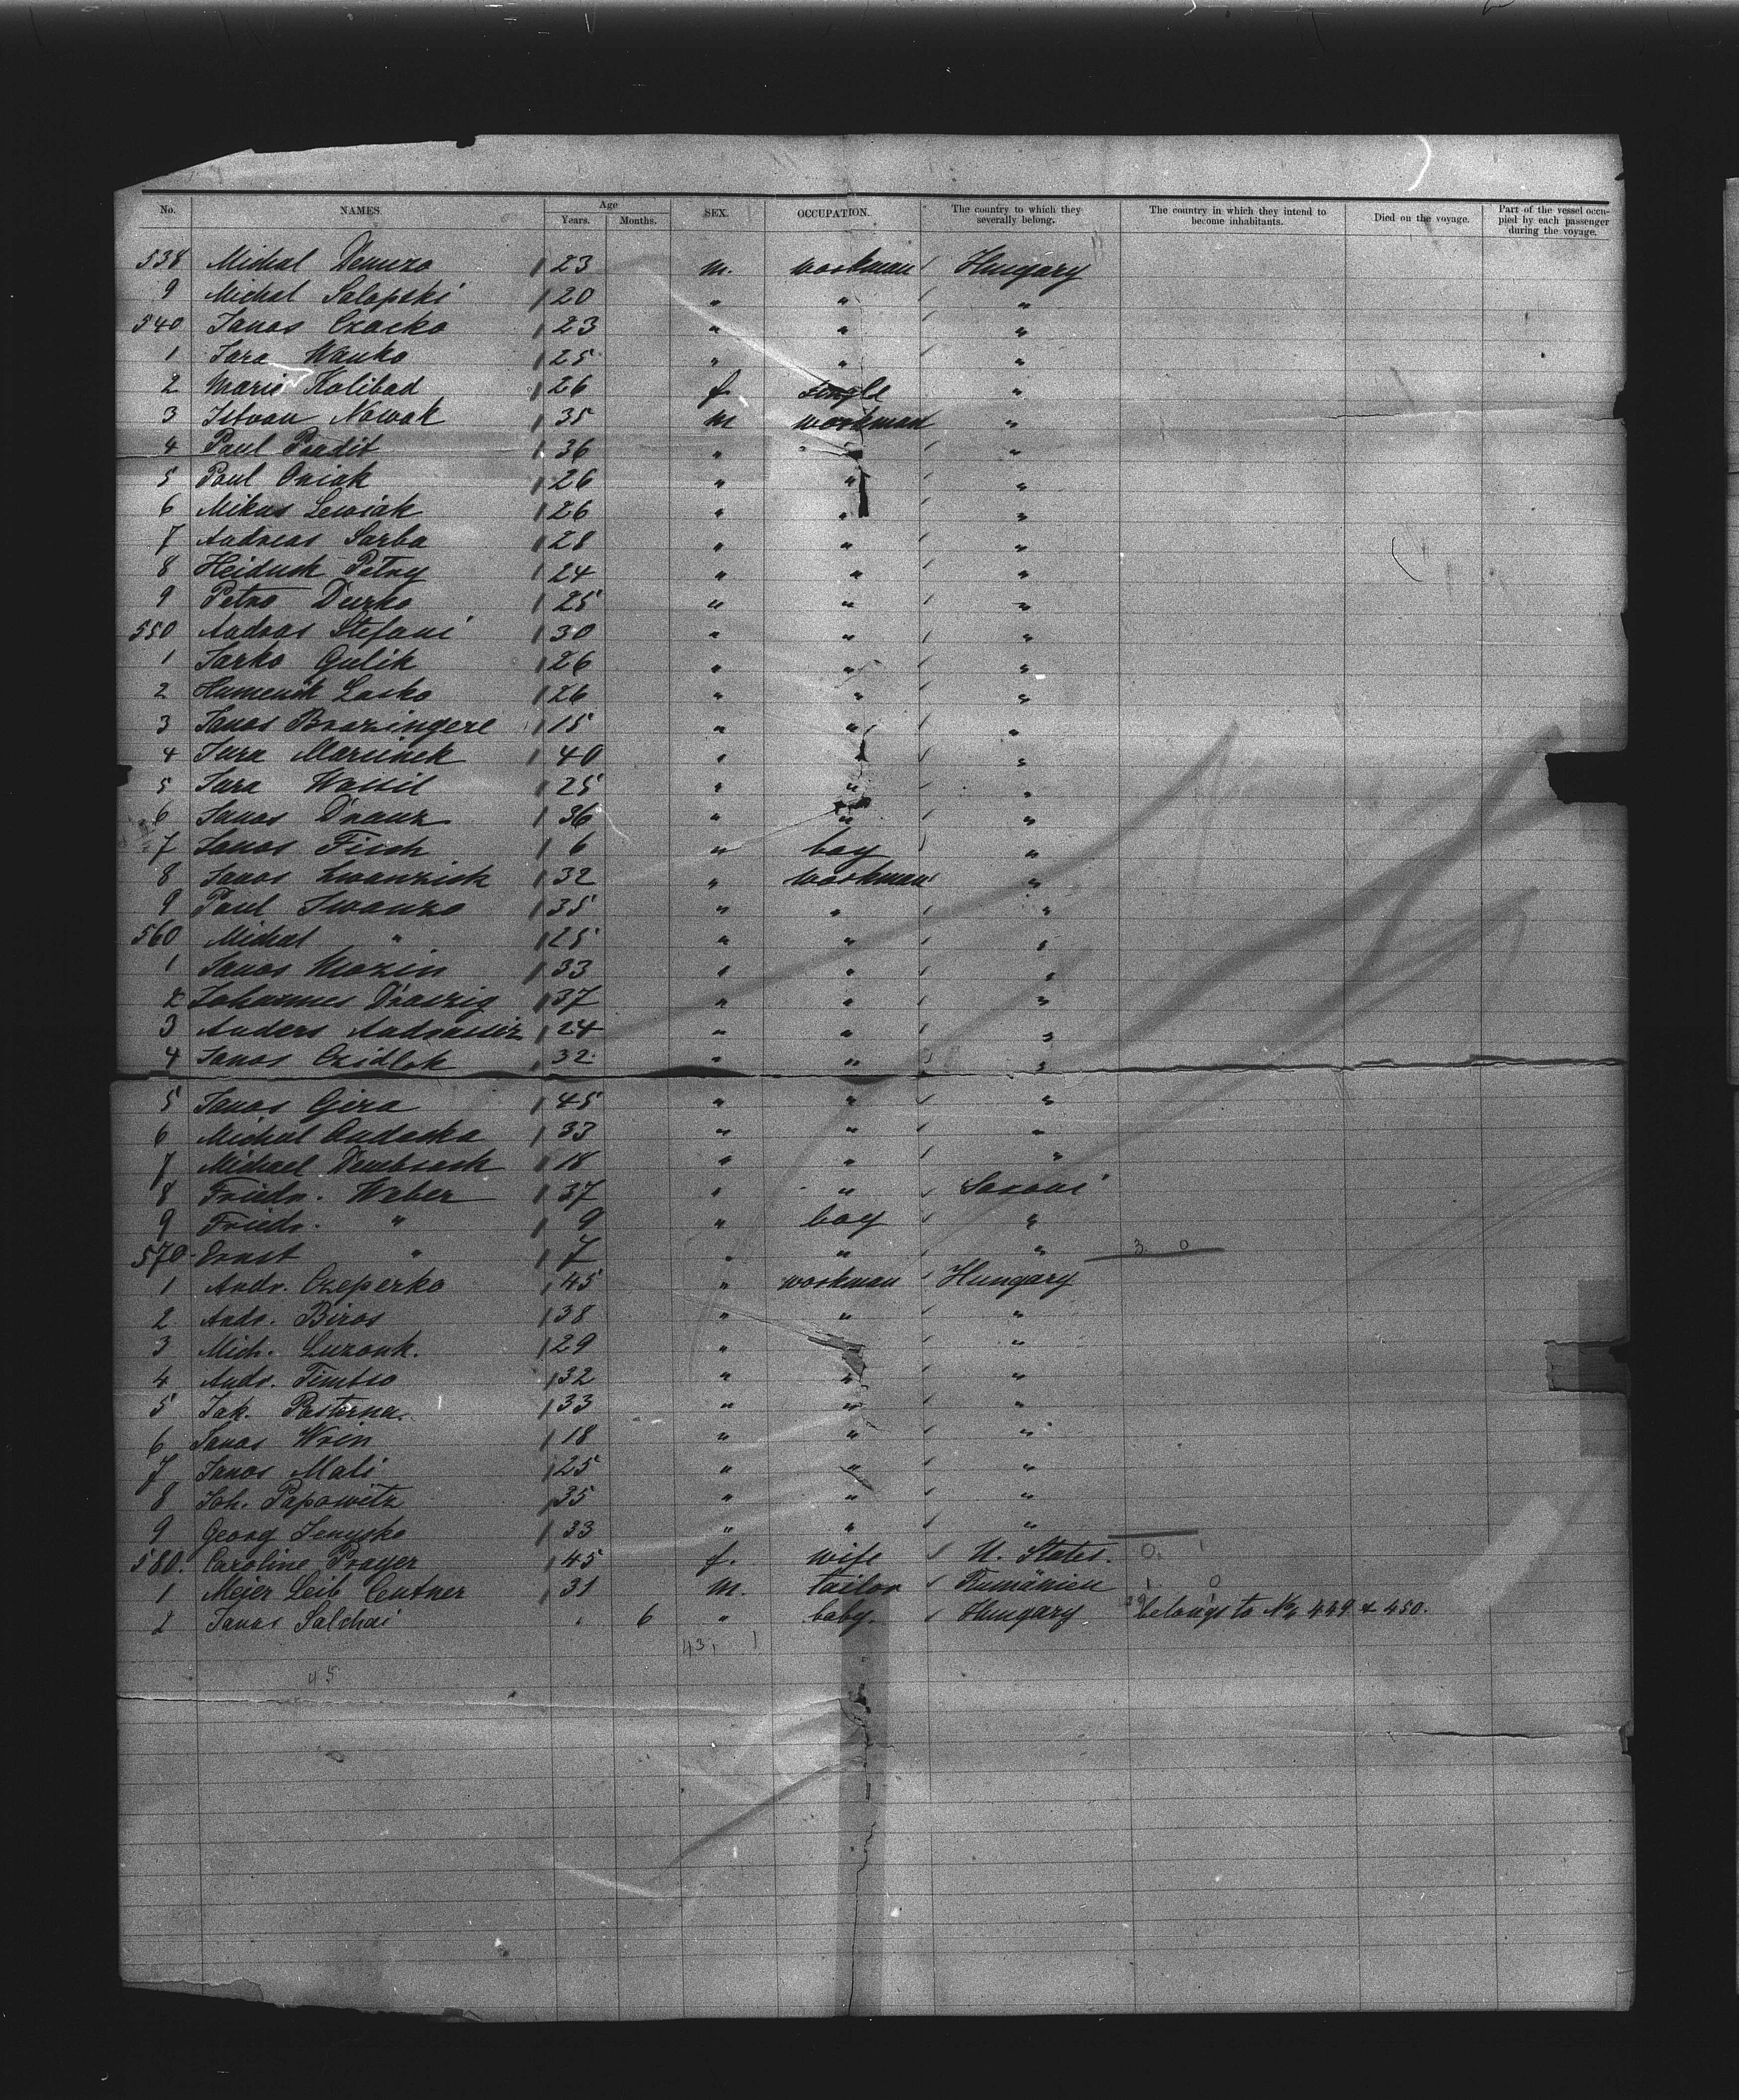 No. NAMES. Age Years. Months. SEX. OCCUPATION. The country to which they severally belong. The country in which they intend to become inhabitants. Died on the voyage. Part of the vessel occupied by each passenger during the voyage.
538 Michal 23 m. workman Hungary
9 Michal Salapski 20 " " "
540 Janos Czacko 23 " " "
1 Jura Wanko 25 " " "
2 Maria Kolibad 26 f. single "
3 Istvan Nowak 35 m workman "
4 Paul 36 " " "
5 Paul Oniak 26 " " "
6 Mikus Lewiak 26 " " "
7 Andreas Sarba 28 " " "
8 Heiduck Petry 24 " " "
9 Petro Durko 25 " " "
550 Andras Stefani 30 " " "
1 Jarko Gulik 26 " " "
2 Humenik Lasko 26 " " "
3 Janos Brazingere 15 " " "
4 Jura Marcinek 40 " " "
5 Jura Wassil 25 " " "
6 Janos 36 " " "
7 Janos Fisch 6 " boy "
8 Janos 32 " workman "
9 Paul Iwanzo 35 " " "
560 Michal " 25 " " "
1 Janos 33 " " "
2 Johannes 37 " " "
3 Anders 24 " " "
4 Janos Czidlak 32 " " "
5 Janos Gera 45 " " "
6 Michal Oudaska 33 " " "
7 Michael 18 " " "
8 Friedr. Weber 37 " " Saxoni
9 Friedr. " 9 " boy "
570 Ernst " 7 " " " 3 0
1 Andr. Czeperko 45 " workman Hungary
2 Andr. Biros 38 " " "
3 Mich. Luzonk. 29 " " "
4 Andr. Timbso 32 " " "
5 Jak. Pasterna. 33 " " "
6 Janos Wrin 18 " " "
7 Janos Mali 25 " " "
8 Joh. Papowitz 35 " " "
9 Georg Jenysko 33 " " "
580. Caroline Prayer 45 f. wife U. States. 0. 1
1 Meier Leib Centner 31 m. tailor Rumänien 1. 0
2 Janos Salchai 6 " baby. Hungary belongs to No 449 & 450.
43, 1
45